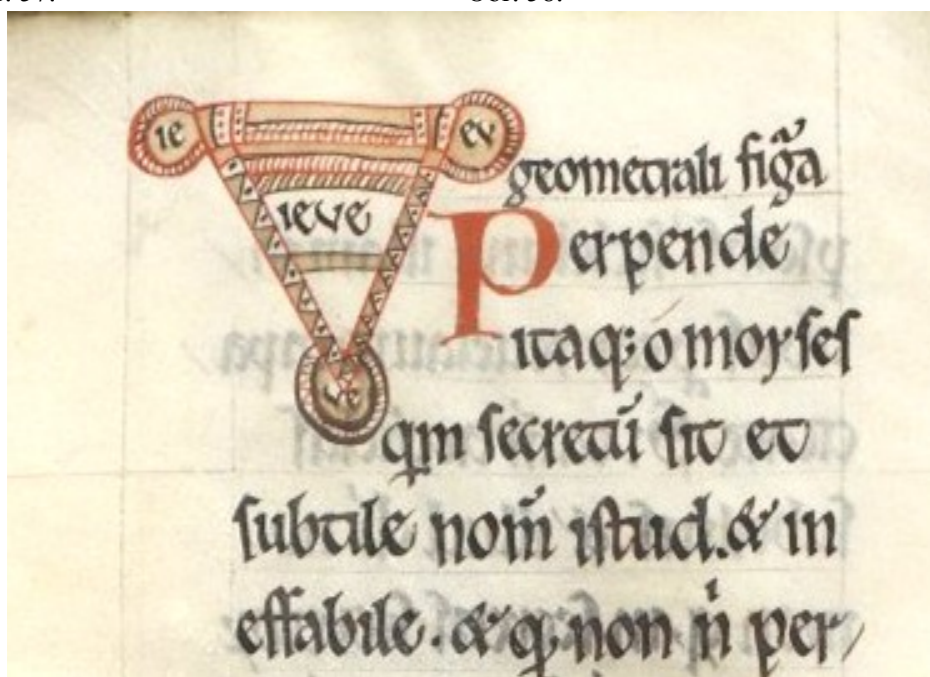 ie
ev
ieve
ve
geometrali figa
Perpende
itaq; o moyses
qm secretū sit et
subtile nom̄ istud. & in
effabile. & q; non n̄ per